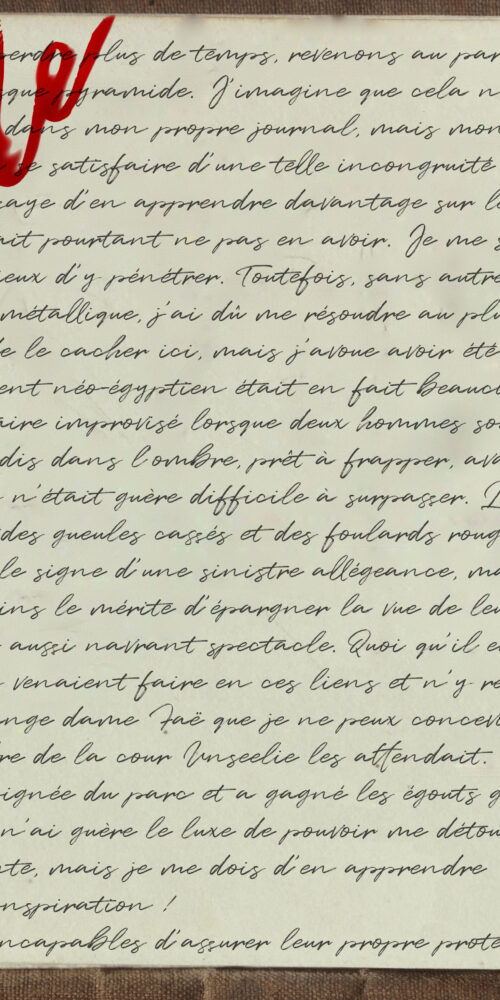 perdre plus de temps, revenons au par
que pyramide. J'imagine que cela n
dans mon propre journal, mais mon
se satisfaire d'une telle incongruité
aye d'en apprendre davantage sur l
ait pourtant ne pas en avoir. Je me s
ieux d'y pénétrer. Toutefois, sans autre
métallique, j'ai dû me résoudre au plu
e le cacher ici, mais j'avoue avoir été
ent néo-égyptien était en fait beauco
aire improvisé lorsque deux hommes so
dis dans l'ombre, prêt à frapper, ava
n'était guère difficile à surpasser.
des gueules cassés et des foulards roug
le signe d'une sinistre allégeance, ma
ins le mérite d'épargner la vue de leu
aussi navrant spectacle. Quoi qu'il e
venaient faire en ces liens et n'y re
nge dame Faë que je ne peux concev
re de la cour Unseelie les attendait.
ignée du parc et a gagné les égouts g
n'ai guère le luxe de pouvoir me détou
te, mais je me dois d'en apprendre
nspiration !
ncapables d'assurer leur propre prote